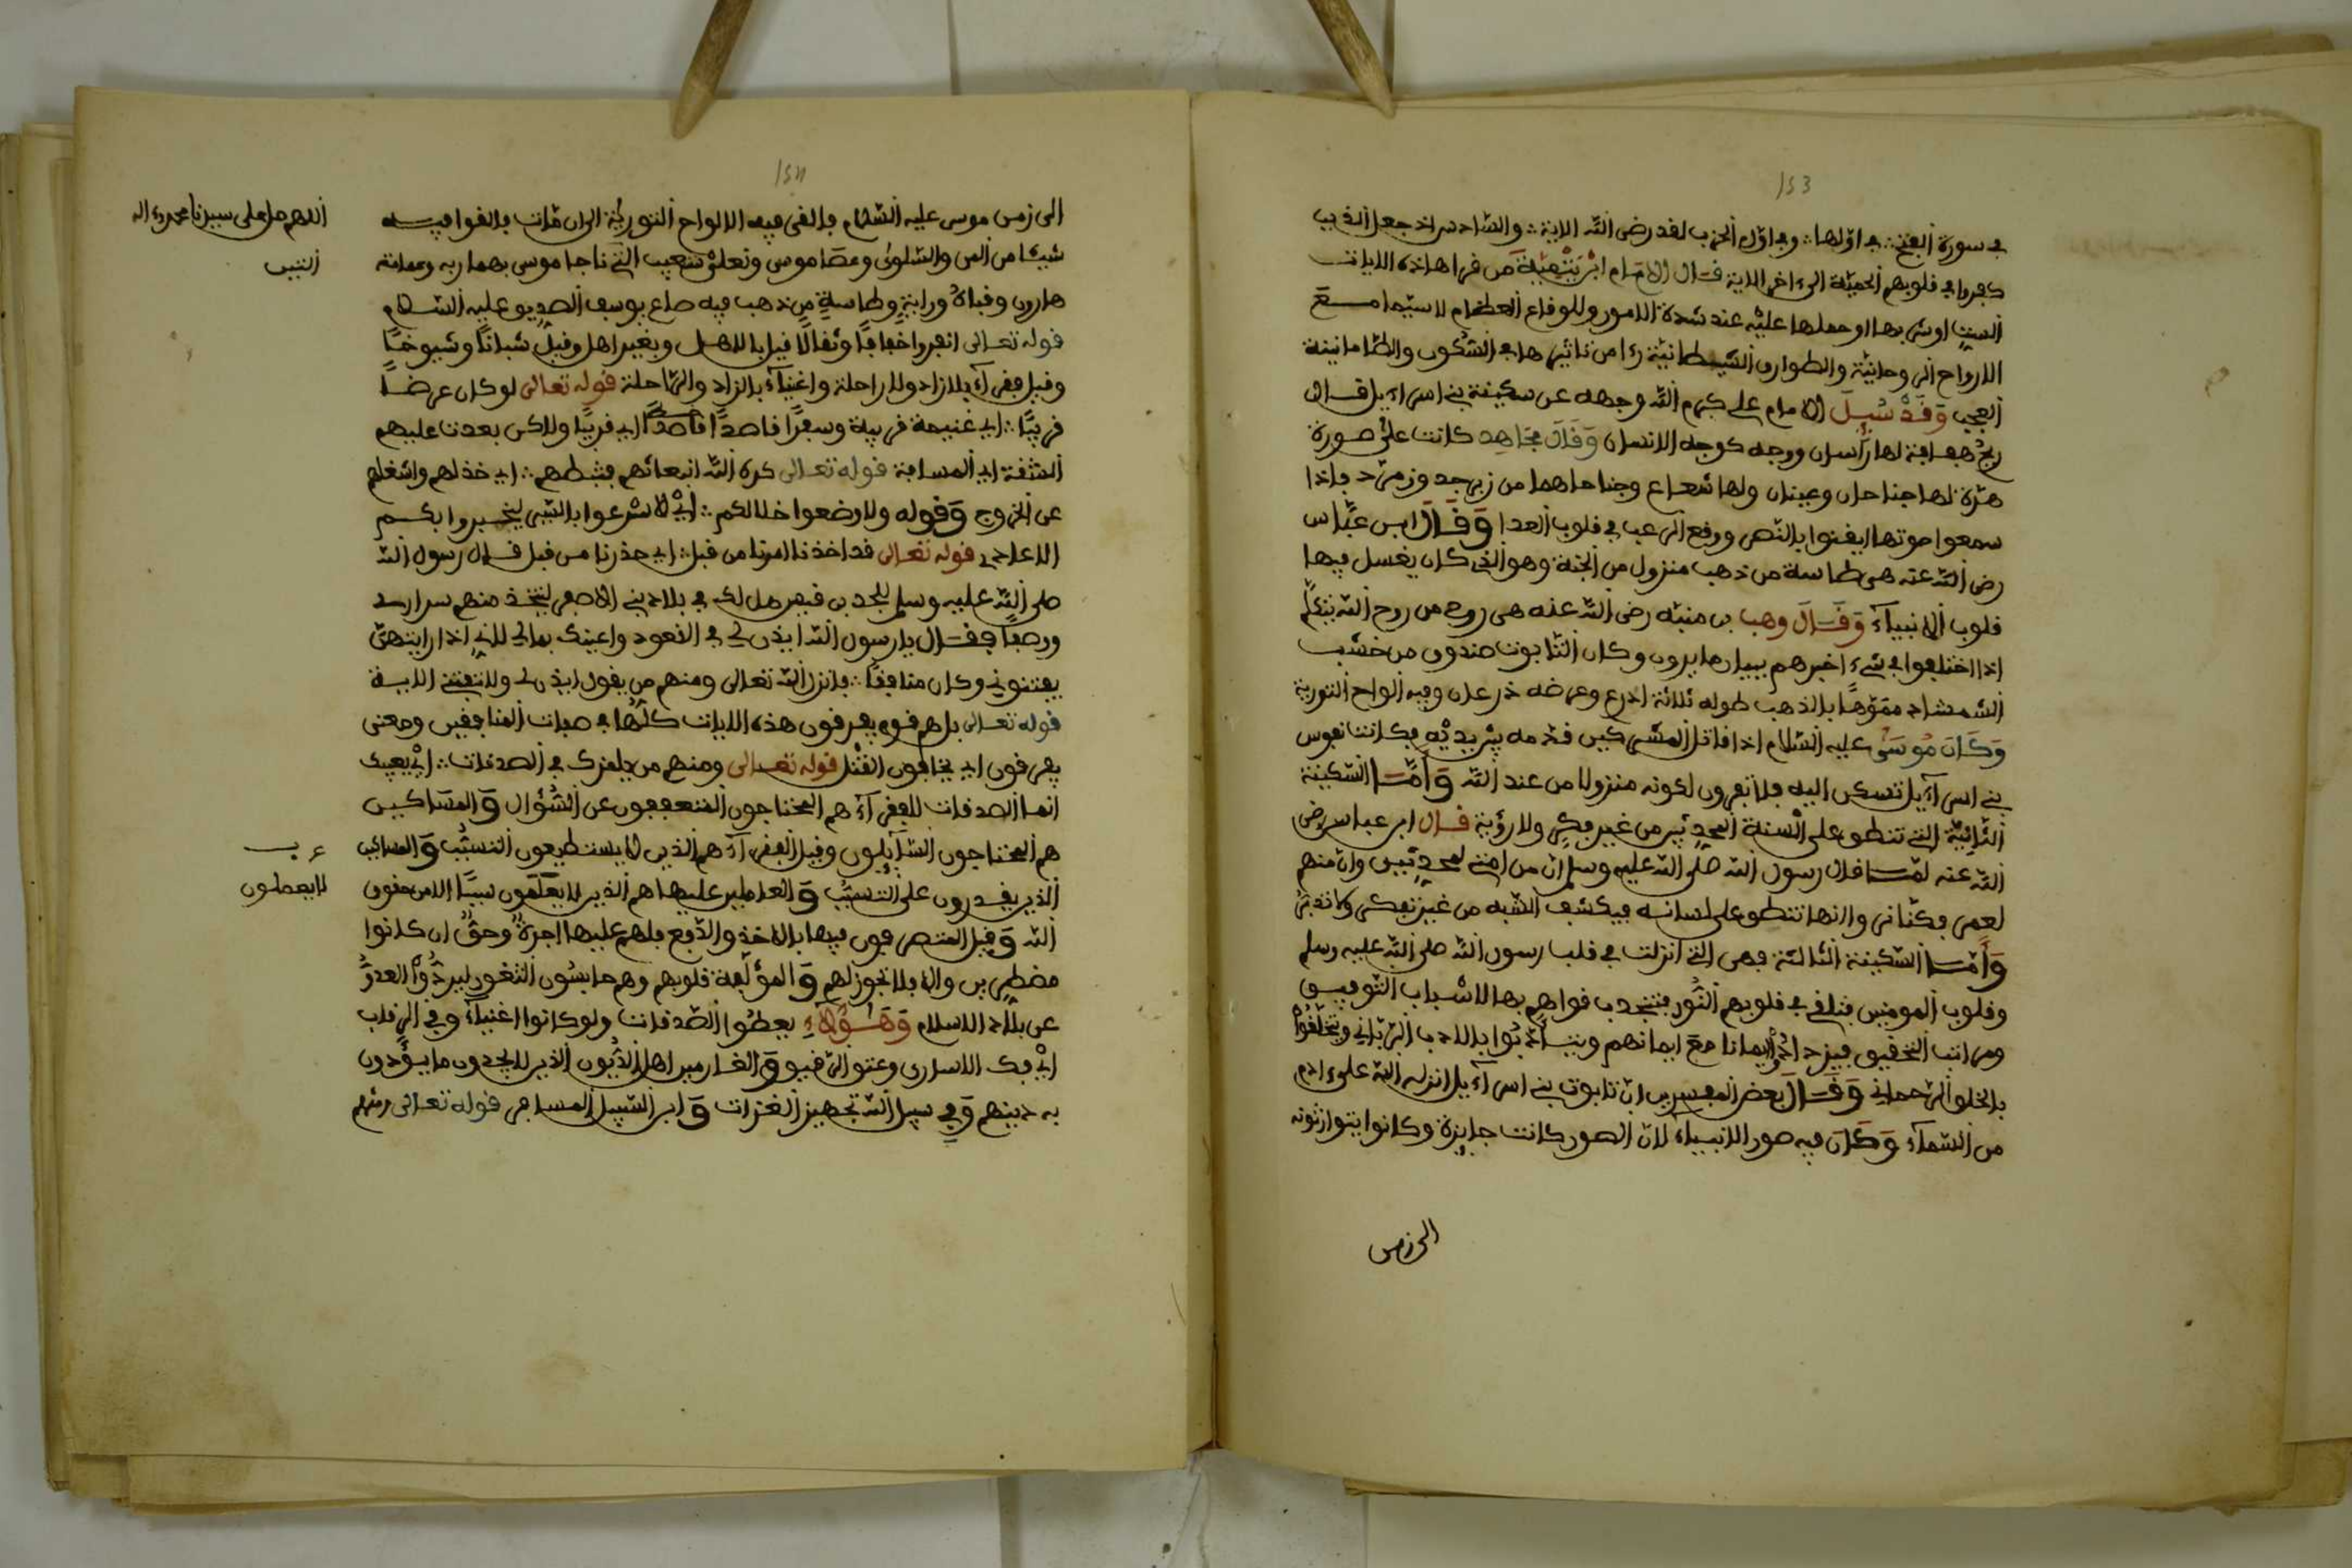 153
في سورة الفتح ∴ في اولها ∴ وفي اول الحزب لقد رضى الله الاية ∴ والسادس اذ جعل الذين
كفروا في قلوبهم الحمية الى ءاخر الاية قال الامام ابن تيمية من قرا هاذه الايات
الست اوشى بها او حملها عليه عند شدة الامور وللوقاع العظام لاسيما مع
الارواح الروحانية والطوارق الشيطانية رءا من تاثيرها في السكون والطامانينة
العجب وقد سيل الامام علي كرم الله وجهه عن سكينة بني اسراءيل قال
ريح هفافة لها راسان ووجه كوجه الانسان وقال مجاهد كانت على صورة
هرة لها جناحان وعينان ولها شعاع وجناحاهما من زبرجد وزمرد فاذا
سمعوا صوتها ايقنوا بالنصر ووقع الرعب في قلوب العدا وقال ابن عباس
رضى الله عنه هي طاسة من ذهب منزول من الجنة وهو الذي كان يغسل فيها
قلوب الانبياء وقال وهب بن منبه رضى الله عنه هي روح من روح الله تتكلم
اذا اختلفوا في شيء اخبرهم ببيان ما يرون وكان التابوت صندوق من خشب
الشمشاد مموها بالذهب طوله ثلاثة اذرع وعرضه ذرعان وفيه الواح التورية
وكان موسى عليه السلام اذا قاتل المشركين قدمه بين يديه فكانت نفوس
بني اسراءيل تسكن اليه فلا تفرون لكونه منزولا من عند الله وأما السكينة
الثانية التي تنطق على السنة المحدثين من غير فكر ولا رؤية قال ابن عباس رضى
الله عنه لما قال رسول الله صلى الله عليه وسلم ان من امتي لمحدثين وان منهم
لعمر فكنا نرى وانها تنطق على لسانه فيكشف الشبه من غير تفكر ولا تدبر
وأما السكينة الثالثة فهي التي انزلت في قلب رسول الله صلى الله عليه وسلم
وقلوب المومنين فتلقى في قلوبهم النور فتنجدب قواهم بها لاسباب التوفيق
ومراتب التحقيق فيزدادوا إيمانا مع ايمانهم ويتأدبوا بالادب الرباني ويتخلقوا
بالخلق الرحماني وقال بعض المفسرين ان تابوت بني اسراءيل انزله الله على ءادم
من السماء وكان فيه صور الانبياء لان الصور كانت جايزة وكانوا يتوارثونه
الى زمن
154
الى زمن موسى عليه السلام فالقى فيه الالواح التورية الى ان مات فالقوا فيه
شيئا من المن والسلوى وعصا موسى وتعلى شعيب التي ناجا موسى بهما ربه وعمامة
هارون وقباه وراية وطاسة من ذهب فيه صاع يوسف الصديق عليه السلام
قوله تعالى انفروا خفافا وثقالا قيل بالاهل وبغير اهل وقيل شبانا وشيوخا
وقيل فقراء بلا زاد ولا راحلة واغنياء بالزاد والراحلة قوله تعالى لو كان عرضا
قريبا ∴ اي غنيمة قريبة وسفرا قاصدا قاصدا اي قريبا ولاكن بعدت عليهم
الشقة اي المسافة قوله تعالى كره الله انبعاثهم فثبطهم ∴ اي خذلهم واشغلهم
عن الخروج وقوله ولاوضعوا خلالكم ∴ اي لاسرعوا بالشي ليخبروا بكم
الاعادي قوله تعالى قد اخذنا امرنا من قبل ∴ اي حذرنا من قبل قال رسول الله
صلى الله عليه وسلم للجد بن قيس هل لك في بلاد بني الاصفر لتتخذ منهم سراري
ورصفا فقال يا رسول الله ايذن لي في القعود واعينك بمالي لاني اذا رايتهن
يفتنوني وكان منافقا ∴ فانزل الله تعالى ومنهم من يقول ايذن لي ولا تفتني الاية
قوله تعالى بل هم قوم يفرقون هذه الايات كلها في صفات المنافقين ومعنى
يفرقون اي يخافون القتل قوله تعالى ومنهم من يلمزك في الصدقات ∴ اي يعيبك
انما الصدقات للفقراء هم المحتاجون المتعففون عن السؤال والمساكين
هم المحتاجون السايلون وقيل الفقراء هم الذين لا يستطيعون التسبب والمساكين
الذين يقدرون على التسبب والعاملين عليها هم الذين لا يعلمون سببا الا من حقوق
الله وقيل المتصرفون فيها بالاخذ والدفع فلهم عليها اجرة وحق ان كانوا
مضطرين والا فلا تجوز لهم والمؤلفة قلوبهم وهم حابسون الثغور ليردوا العدو
عن بلاد الاسلام وهؤلاء يعطوا الصدقات ولو كانوا اغنياء وفي الرقاب
اي فك الاسارى وعتق الرقيق والغارمين اهل الديون الذين لا يجدون ما يؤدون
به دينهم وفي سبيل الله تجهيز الغزات وابن السبيل المسافر قوله تعالى ومنهم
اللهم صل على سيدنا محمد وءاله
النبيين
لا يعطون